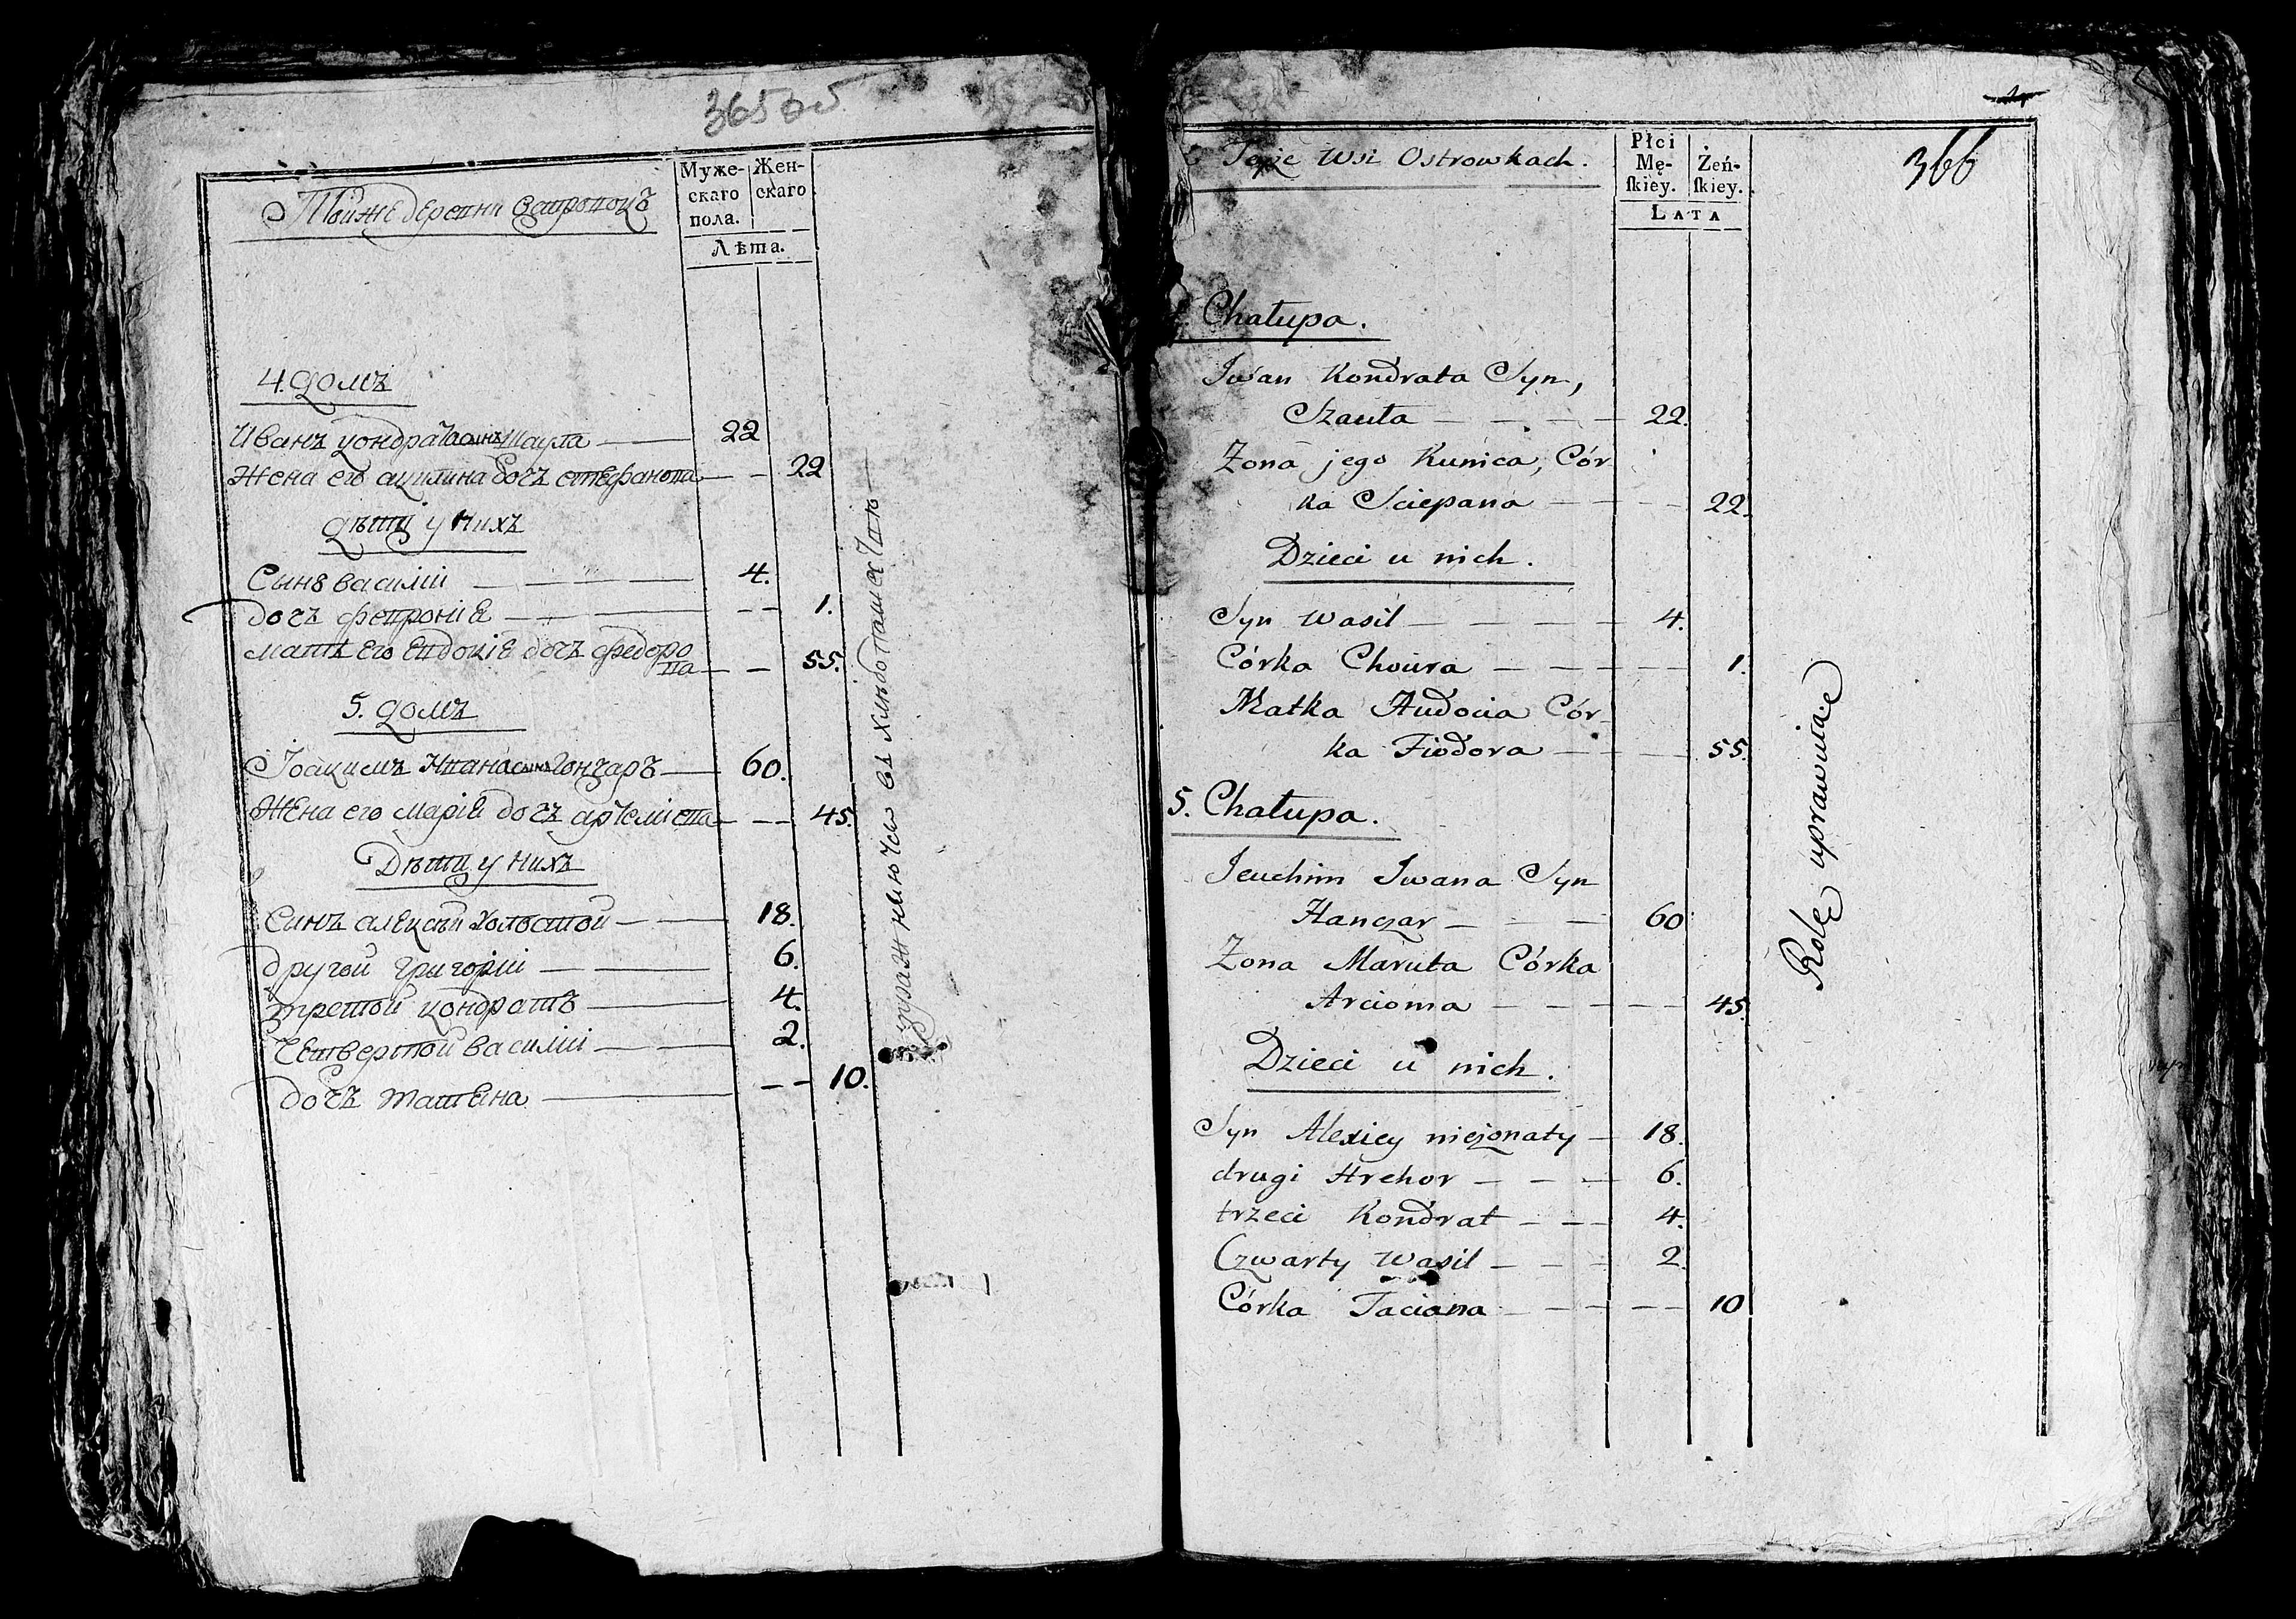 365 об
Тойже деревни Островокъ
Муже-
скаго
пола.
Жен-
скаго
Лѣта.
4. домъ
Иванъ кондратасынъ Шаула 22
Жена его акилина дочъ стефанова 22
Дѣти у нихъ
Сынъ василій 4.
дочъ февроніе 1.
мать его евдокіе дочъ федоро
ва 55.
5. домъ
Іоакимъ Иванасынъ Гончаръ 60.
Жена его маріе дочъ артеміева 45.
Дѣти у нихъ
Синъ алексѣй холостой 18.
другой григорій 6.
третой кондратъ 4.
Четвертой василій 2.
дочъ татеяна 10.
въ хлѣбопашестве
366
Teyże Wsi Ostrowkach.
Płci
Mę-
ſkiey.
Żeń-
ſkiey.
LATA
Chałupa.
Iwan Kondrata Syn,
Szauła 22.
Zona jego Kunica, Cór
ka Sciepana 22.
Dzieci u nich.
Syn Wasil 4.
Córka Choura 1.
Matka Audocia Cór
ka Fiodora 55.
5. Chałupa.
Jeuchim Iwana Syn
Hanczar 60
Zona Maruta Córka
Arcioma 45.
Dzieci u nich.
Syn Alexiey nieżonaty 18.
drugi Hrehor 6.
trzeci Kondrat 4.
Czwarty Wasil 2.
Córka Taciana 10
Rolę uprawuiae